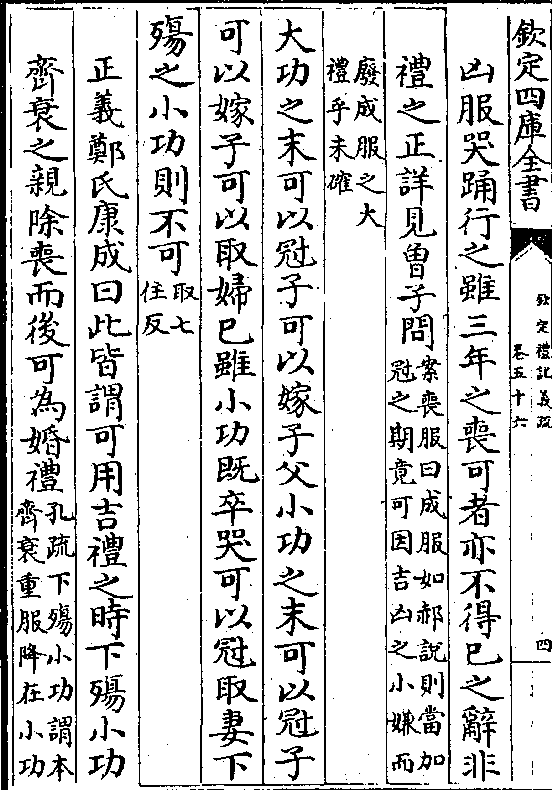 欽定四庫全書
欽定禮記義疏
卷五十六
四
凶服哭踊行之雖三年之喪可者亦不得已之辭非
禮之正詳見曾子問
案喪服曰成服如郝說則當加
冠之期竟可因吉凶之小嫌而
廢成服之大
禮乎未確
大功之末可以冠子可以嫁子父小功之末可以冠子
可以嫁子可以取婦已雖小功既卒哭可以冠取妻下
殤之小功則不可
取七
住反
正義鄭氏康成曰此皆謂可用吉禮之時下殤小功
齊衰之親除喪而後可為婚禮
孔疏下殤小功謂本
齊衰重服降在小功